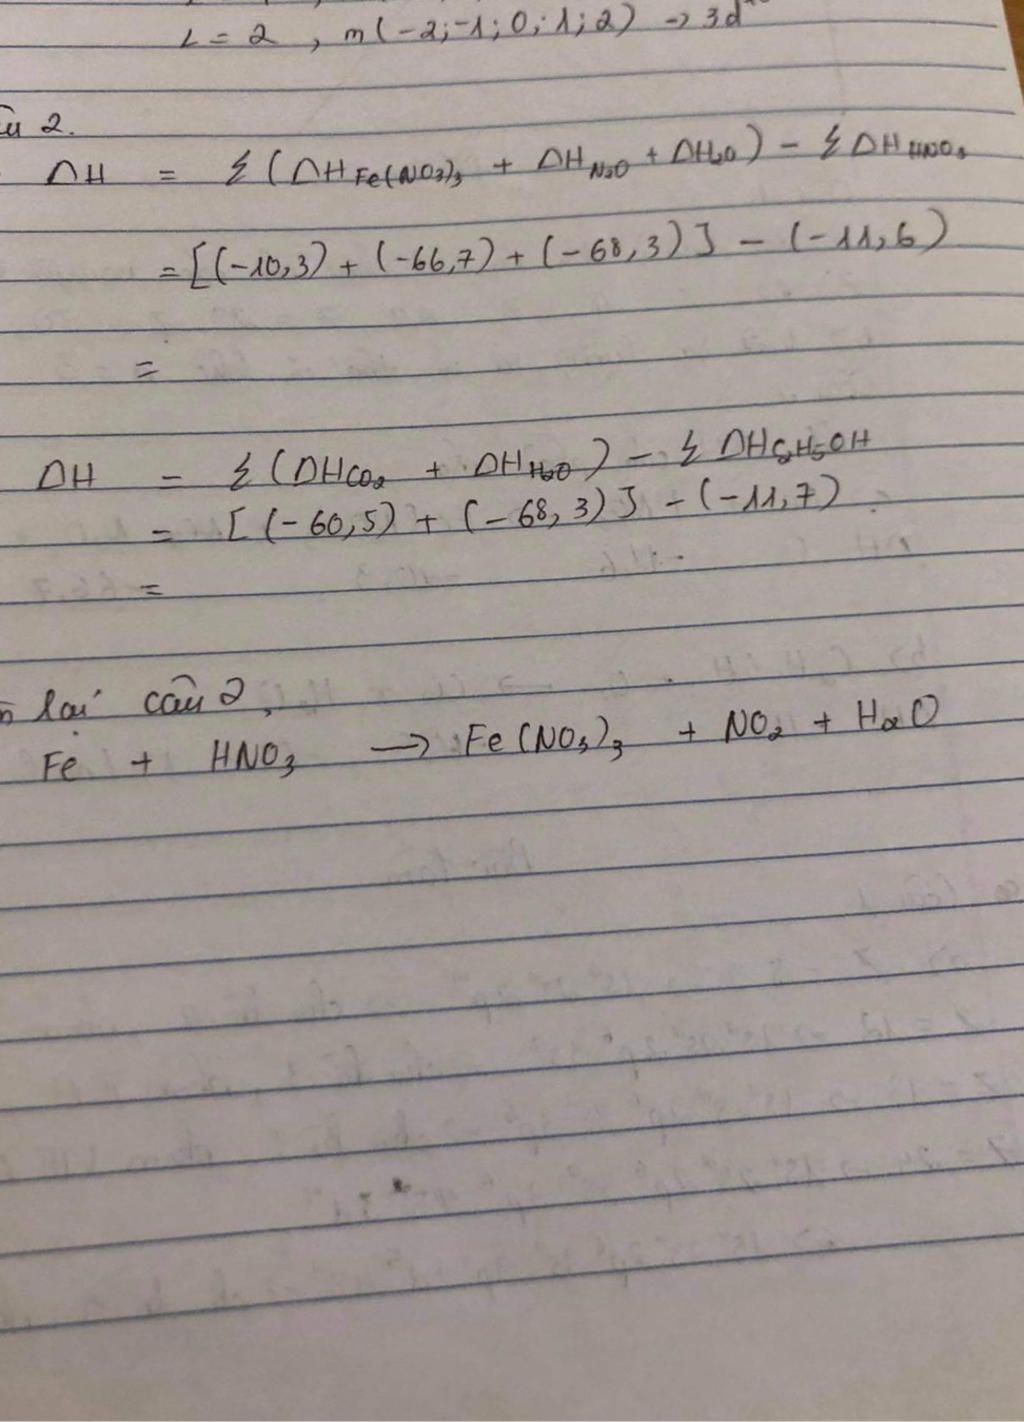 L = 2 , m(-2;-1;0;1;2) → 3d
2.
ΔH = Σ(ΔH Fe(NO3)3 + ΔH N2O + ΔH2O) - ΣΔH HNO3
= [(-10,3) + (-66,7) + (-68,3)] - (-11,6)
=
ΔH = Σ(ΔHCO2 + ΔH H2O) - ΣΔHC2H5OH
= [(-60,5) + (-68,3)] - (-11,7)
=
lại câu 2,
Fe + HNO3 → Fe(NO3)3 + NO2 + H2O